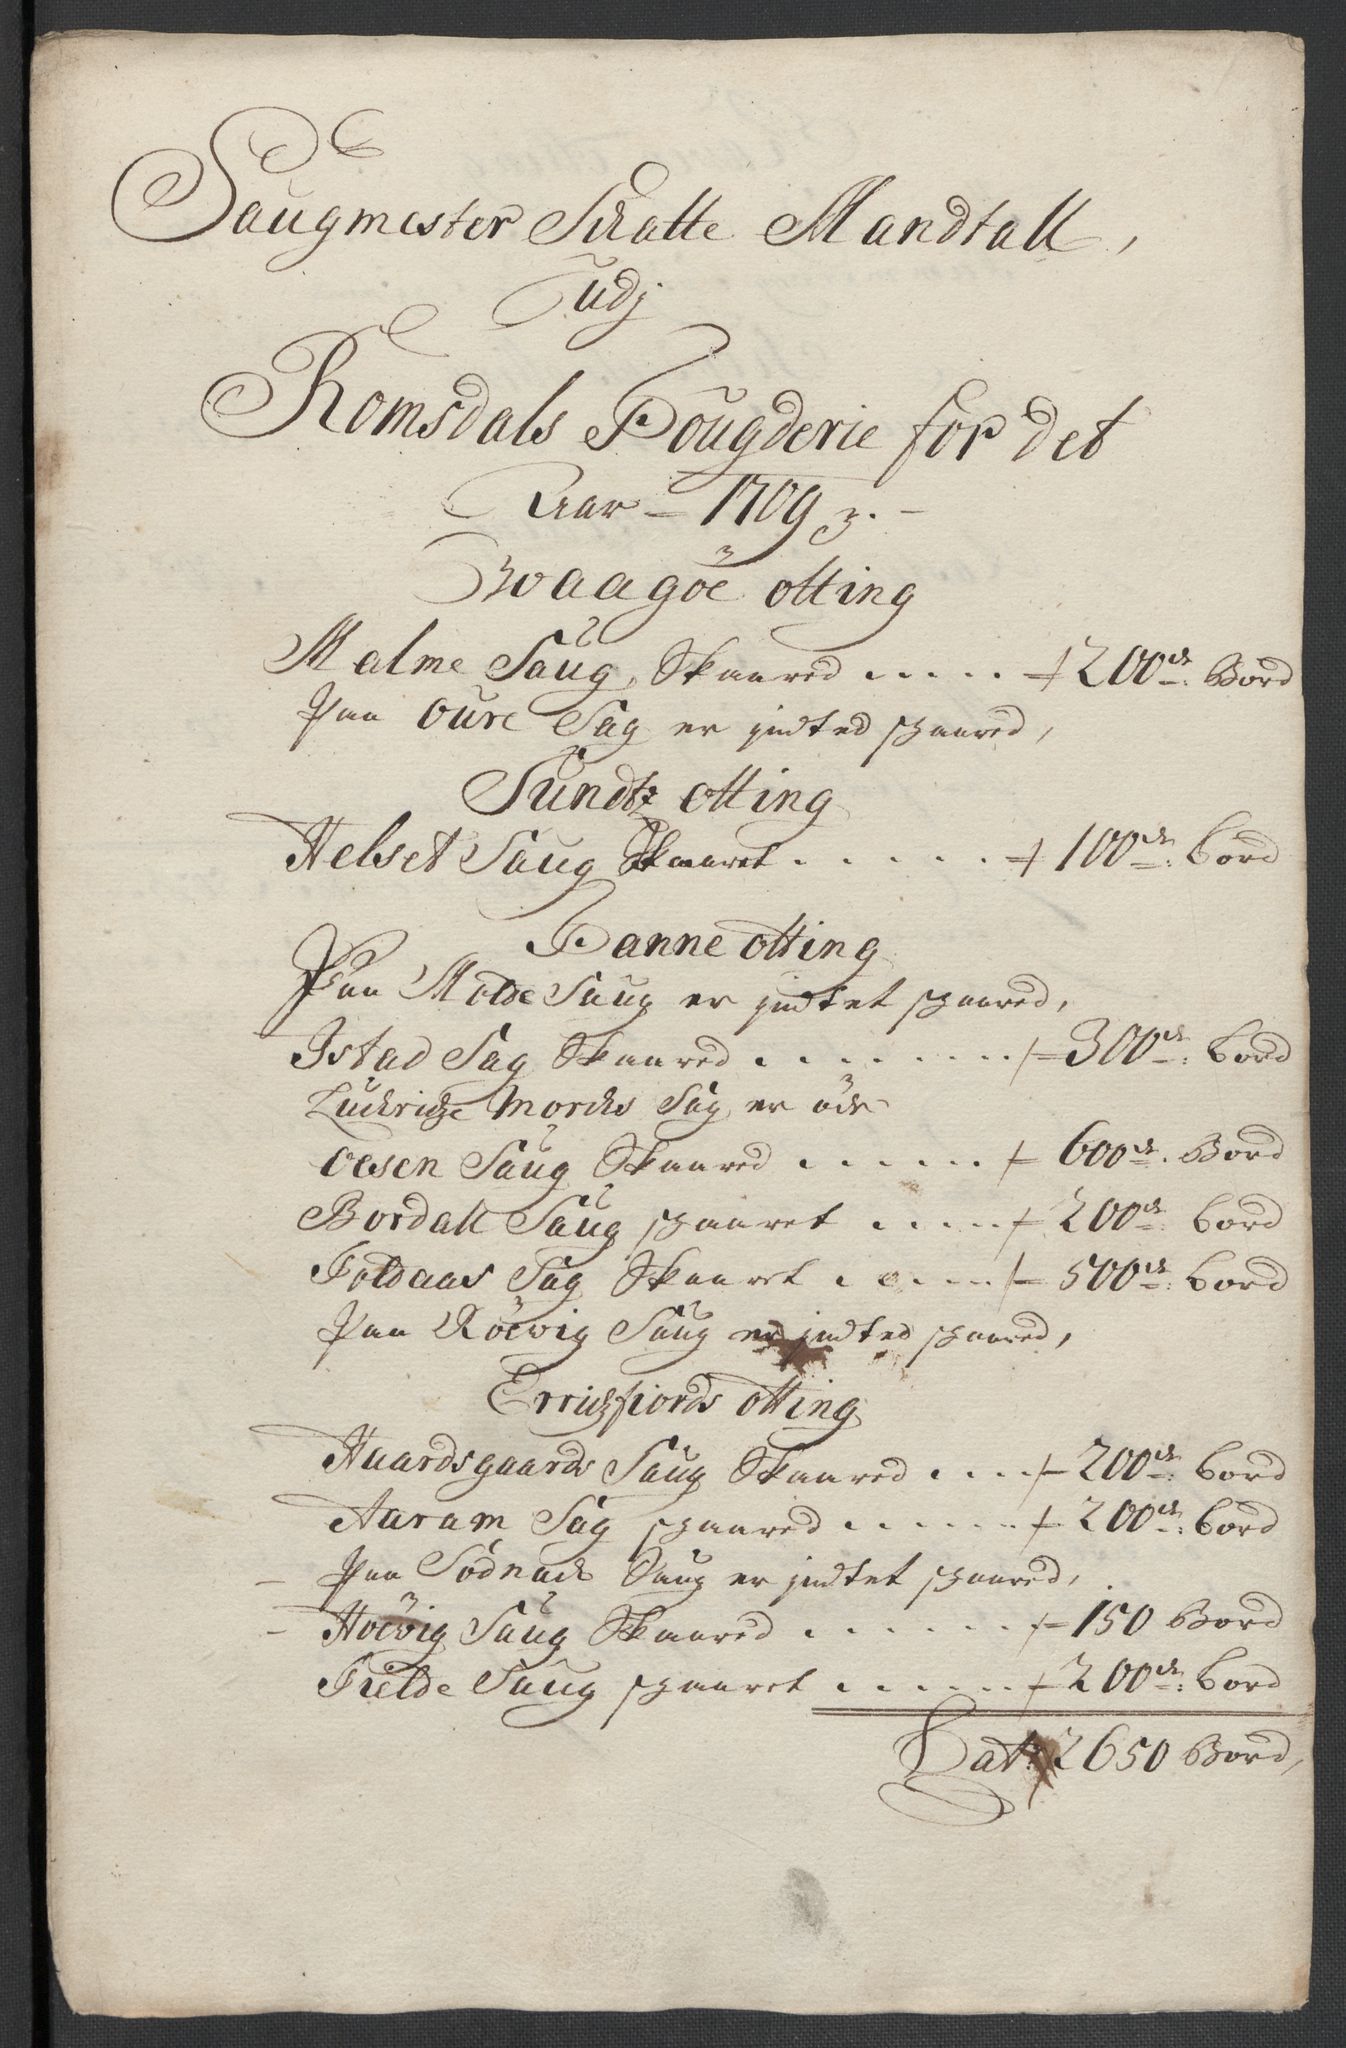 Saugmester Schatte Mandtall,
Udj
Romsdals Fougderie for det
Aar - 1709 z. -
Waagöe otting
Malme Saug, Skaared ..... + 200de. Bord
Paa Oure Sag er jndted skaared,
Sundtz otting
Helset Saug Skaaret ...... + 100de: bord
Fanne otting
Paa Molde Saug er jndtet skaared,
Istad Sag Skaared ........ + 300de: bord
Ludvigs Morches Sag er öde
Oesen Saug Skaared ...... + 600de. Bord
Bordall Saug skaaret ..... + 200de: bord
Foldaas Sag Skaaret ..... + 500de: bord
Paa Röevig Saug er jndted skaared,
Errichsfiords otting
Haardsgaards Saug Skaared .... + 200de: bord
Aaram Sag skaared ...... + 200de: bord
- Paa Södnads Saug er jndtet skaared,
- Hoevig Saug Skaared ...... + 150 Bord
Fielde Saug skaaret ...... + 200de: bord
Lat: 2650 Bord,